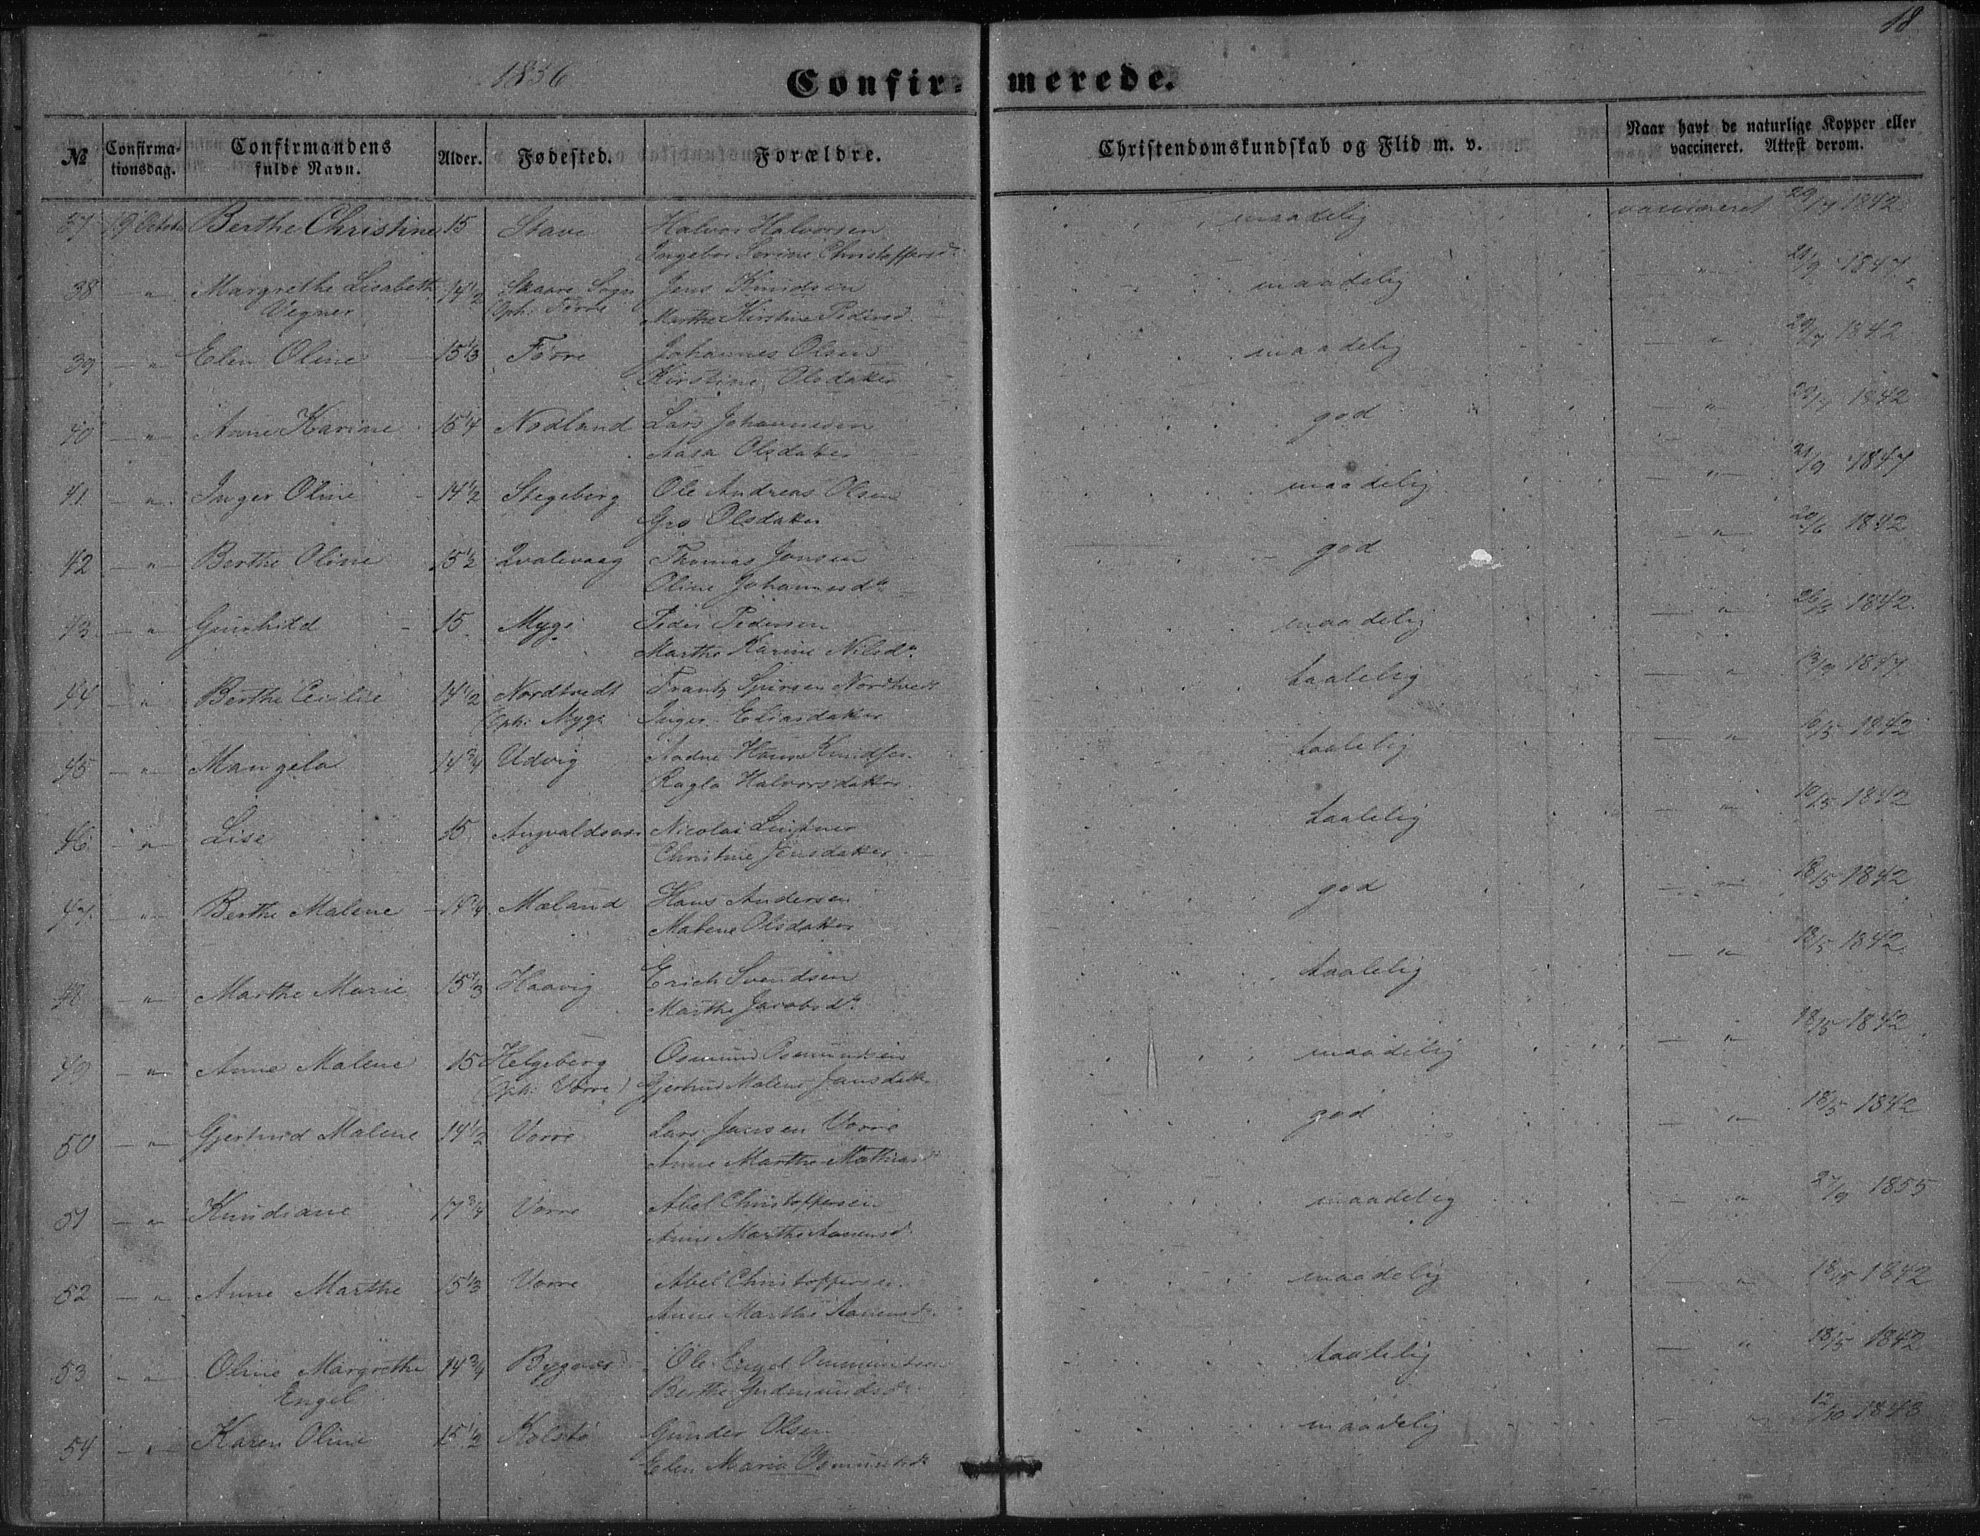 18
1856
Confirmerede.
№ Confirmationsdag. Confirmandens fulde Navn. Alder. Fødested. Forældre. Christendomskundskab og Flid m. v. Naar havt de naturlige Kopper eller vaccineret. Attest derom.
37 19 Octob Berthe Christine 15 Stave Halvor Halvorsen maadelig vaccineret 1842
Ingebor Serine Christoffersd
38 — " — Margrethe Lisabeth 14 1/2 Skaare Sogn Jens Knudsen maadelig — " — 21/9 1847
Vegner Oph: Førre Marthe Kirstine Pedersd
39 — " — Elen Oline 15 1/3 Førre Johannes Olsen maadelig — " — 29/7 1842
Kirstine Olsdatter
40 — " — Anne Karine 15 1/4 Nodland Lars Johannesen god — " — 1842
Aasa Olsdatter
41 — " — Inger Oline 14 1/2 Stegeberg Ole Andreas Olsen maadelig — " — 21/9 1847
Gro Olsdatter
42 — " — Berthe Oline 15 1/2 Qvalevaag Thomas Jonsen god — " — 20/6 1842
Oline Johannesdr
43 — " — Gunhild 15 Myge Peder Pedersen maadelig — " — 1842
Marthe Karine Nilsdr
44 — " — Berthe Cecilie 14 1/2 Nordtvedt Frantz Nordtvedt taalelig — " — 13/9 1847
(Oph: Myge Inger Eliasdatter
45 — " — Mangela 14 3/4 Udvig Aadne Knudsen taalelig — " — 1842
Ragla Halvorsdatter
46 — " — Lise 15 Nicolai taalelig — " — 1842
Christine Jensdatter
47 — " — Berthe Malene 14 3/4 Mæland Hans Andersen god — " — 18/5 1842
Malene Olsdatter
48 — " — Marthe Marie 15 1/3 Haavig Erich Svendsen taalelig — " — 18/5 1842
Marthe Jacobsdr
49 — " — Anne Malene 15 Helgeberg Osmund Osmundsen maadelig — " — 18/5 1842
(Oph: Vorre) Gjertrud Malene Jansdatter
50 — " — Gjertrud Malene 14 1/2 Vorre Lars Jansen Vorre god — " — 18/5 1842
Anne Marthe Mathiasd
51 — " — Knudiane 17 3/4 Vorre Abel Christoffersen maadelig — " — 27/9 1855
Anne Marthe
52 — " — Anne Marthe 15 1/3 Vorre Abel Christoffersen maadelig — " — 18/5 1842
Anne Marthe
53 — " — Oline Margrethe 14 3/4 Bygnæs Ole Engel taalelig — " — 18/5 1842
Engel Berthe Gudmundsdr
54 — " — Karen Oline 15 1/2 Kolstø Gunder Olsen maadelig — " — 12/10 1843
Elen Maria Osmundsdr